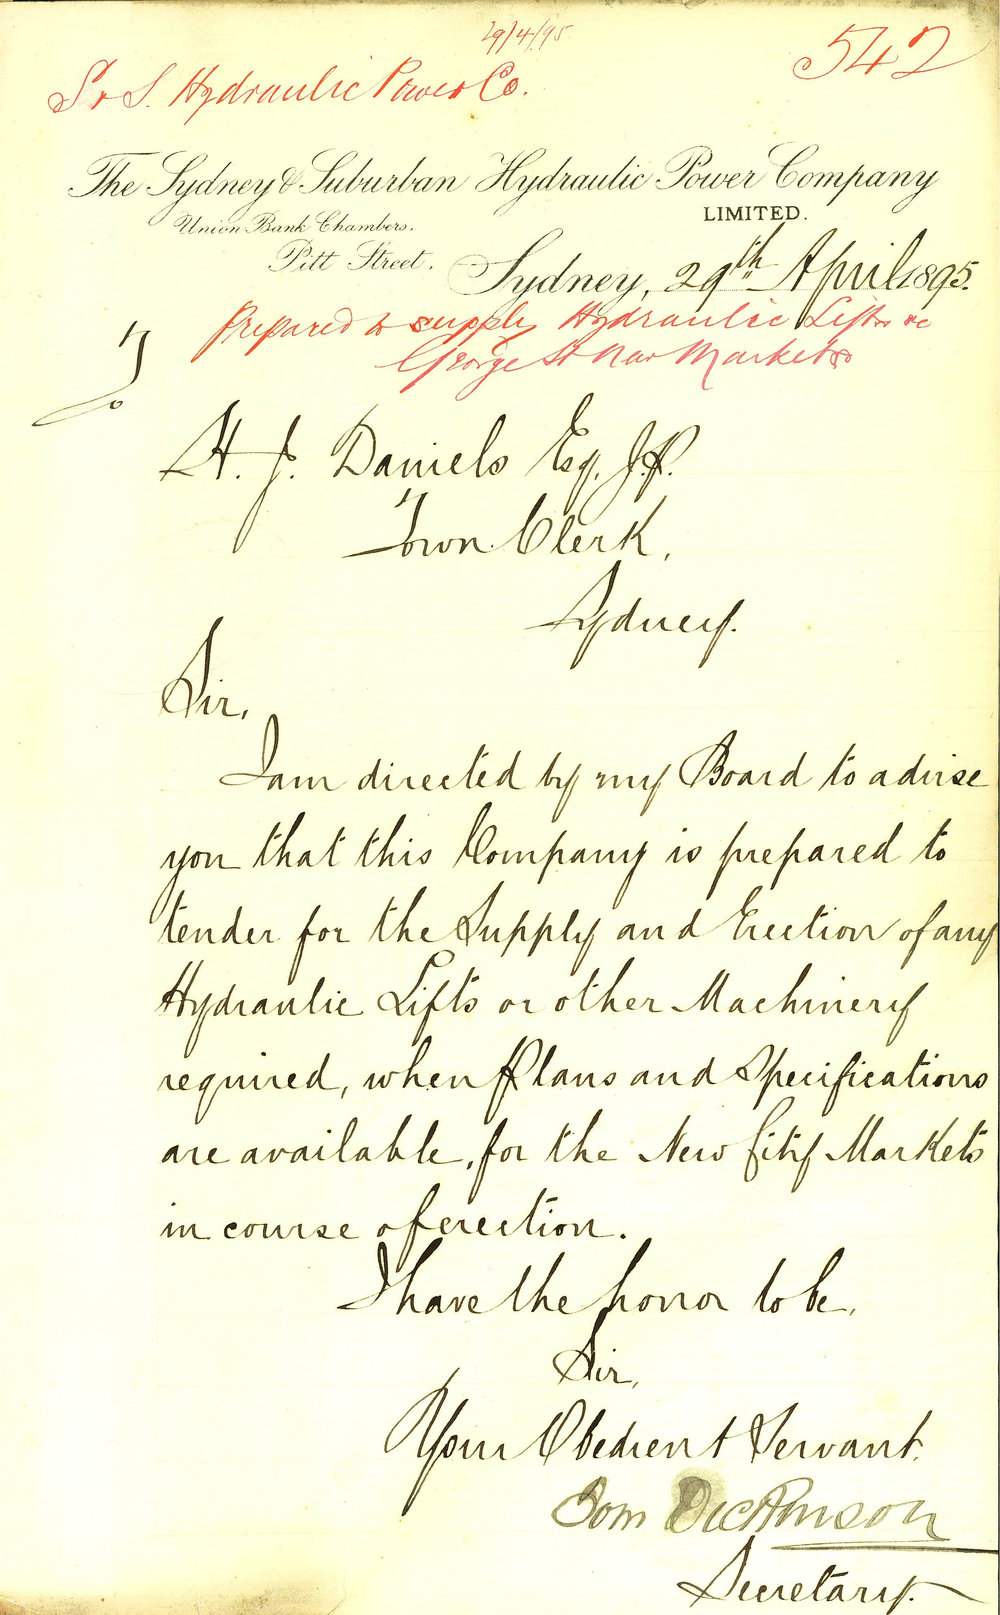 29/4/95
542
S & S. Hydraulic Power Co.
The Sydney & Suburban Hydraulic Power Company
LIMITED.
Union Bank Chambers.
Pitt Street.
Sydney, 29th April 1895.
Prepared to supply Hydraulic Lifts &c
George St New Markets
To
H. J. Daniels Esq. J.P.
Town Clerk,
Sydney.
Sir,
I am directed by my Board to advise
you that this Company is prepared to
tender for the Supply and Erection of any
Hydraulic Lifts or other Machinery
required, when Plans and Specifications
are available, for the New City Markets
in course of erection.
I have the honor to be,
Sir,
Your Obedient Servant.
Tom Dickinson
Secretary.